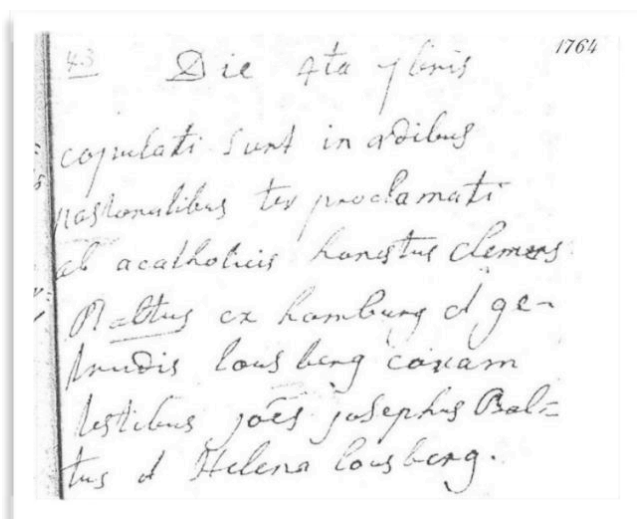 1764
43 Die 4ta 7bris
copulati sunt in ædibus
pastoralibus ter proclamati
ab acatholicis honestus clemens
Baltus ex homburg et ge-
trudis lousberg coram
testibus joes josephus Bal=
tus et Helena lousberg.